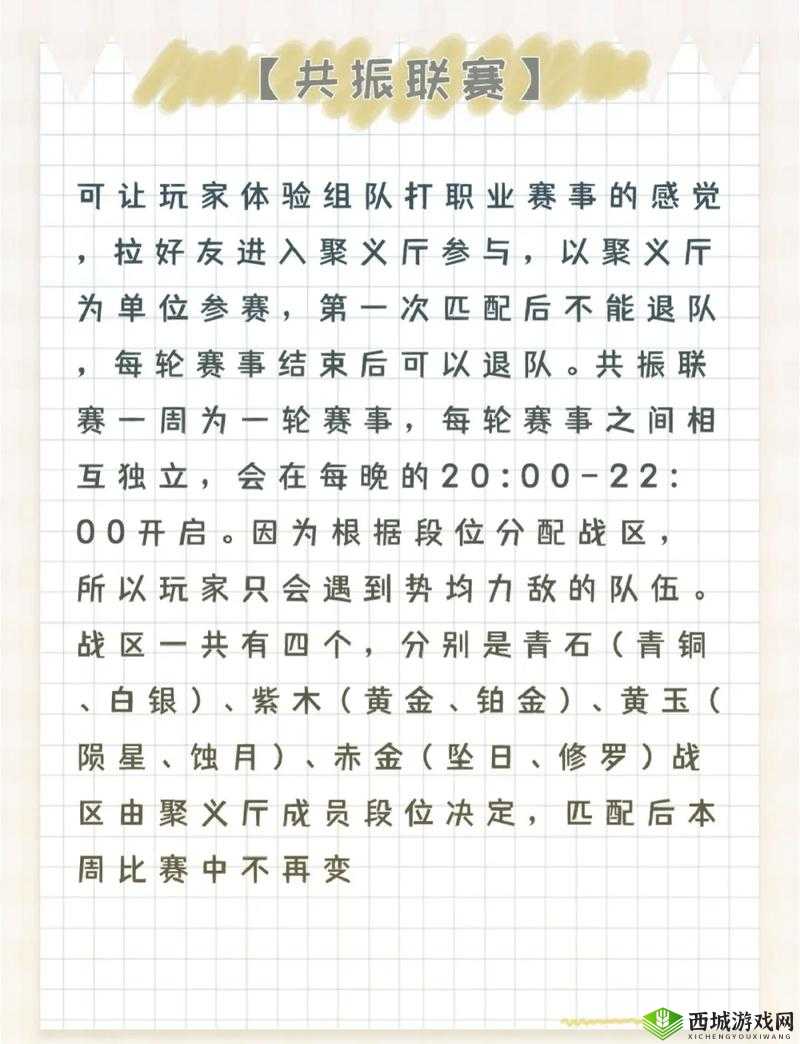 【共振联赛】
可让玩家体验组队打职业赛事的感觉
，拉好友进入聚义厅参与，以聚义厅
为单位参赛，第一次匹配后不能退队
，每轮赛事结束后可以退队。共振联
赛一周为一轮赛事，每轮赛事之间相
互独立，会在每晚的20:00-22:
00开启。因为根据段位分配战区，
所以玩家只会遇到势均力敌的队伍。
战区一共有四个，分别是青石（青铜
、白银）、紫木（黄金、铂金）、黄玉（
陨星、蚀月）、赤金（坠日、修罗）战
区由聚义厅成员段位决定，匹配后本
周比赛中不再变
西城游戏网
XICHENGYOUXIWANG